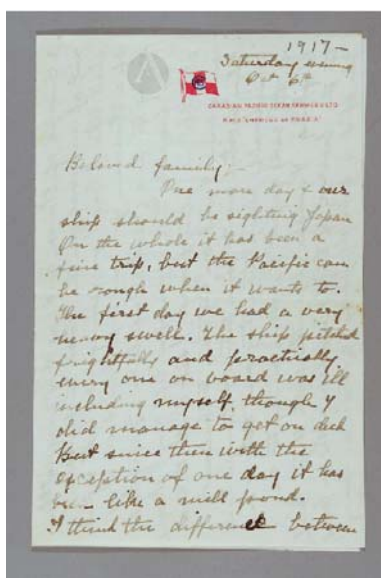 1917 -
Saturday evening
Oct 6th
CANADIAN PACIFIC OCEAN SERVICES LTD
R.M.S. "EMPRESS OF RUSSIA"
Beloved family;-
One more day & our
ship should be sighting Japan
On the whole it has been a
fine trip, but the Pacific can
be rough when it wants to.
The first day we had a very
heavy swell. The ship pitched
frightfully and practically
every one on board was ill
including myself, though I
did manage to get on deck
But since then with the
exception of one day it has
been like a mill pond.
I think the difference between